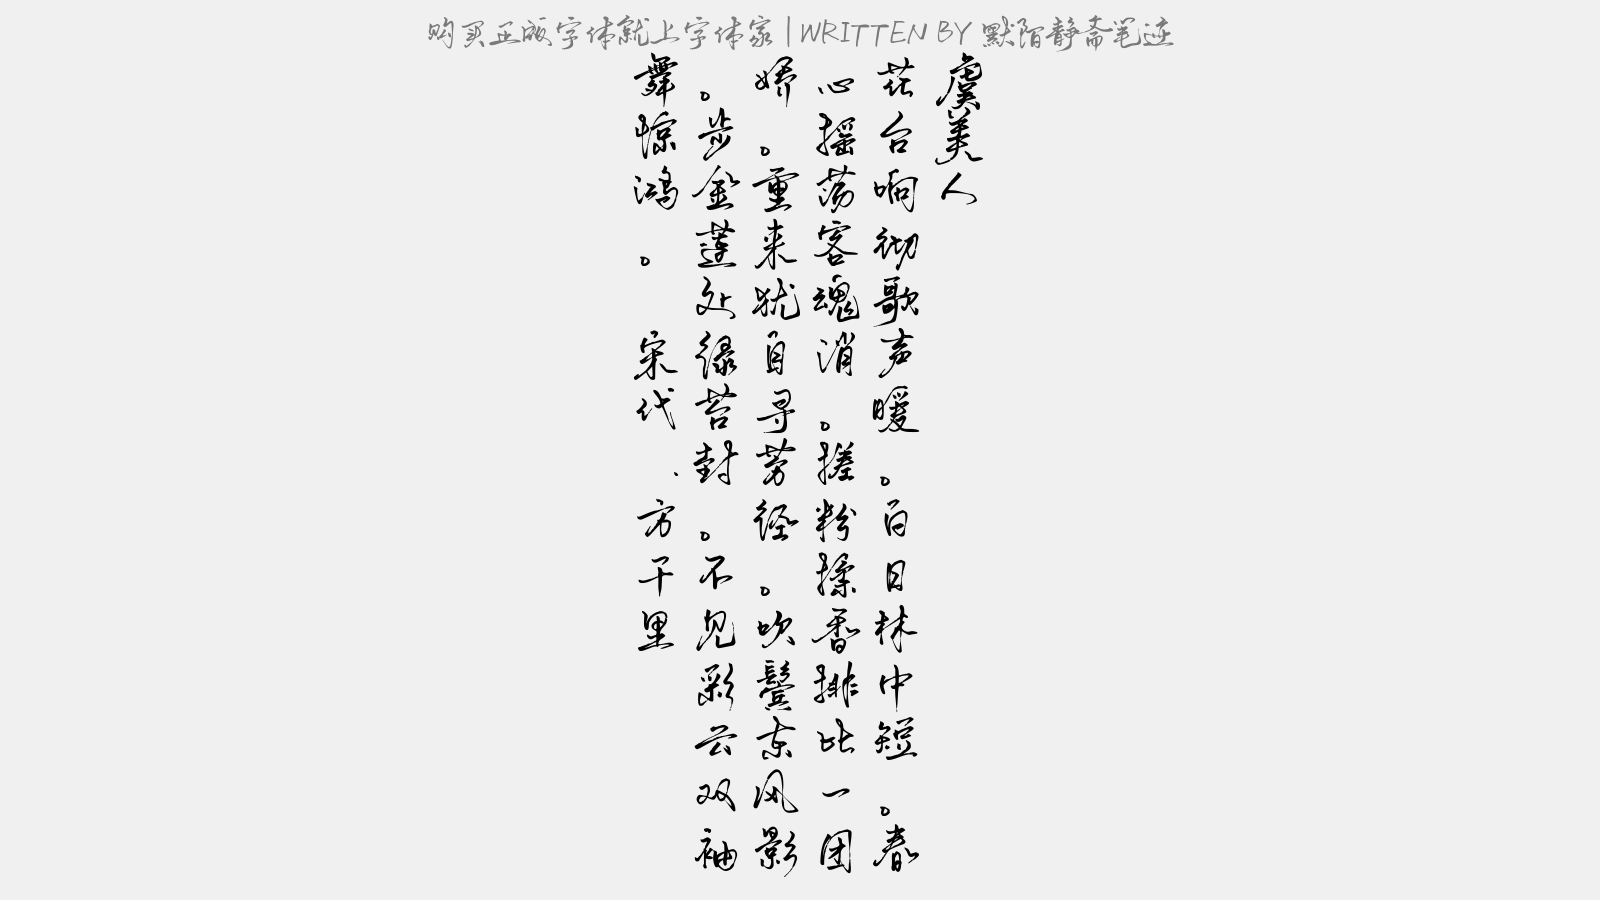 购买正版字体就上字体家 | WRITTEN BY 默陌静斋笔迹
虞美人
花台响彻歌声暖。白日林中短。春
心摇荡客魂消。搓粉揉香排比一团
娇。重来犹自寻芳径。吹鬓东风影
。步金莲处绿苔封。不见彩云双袖
舞惊鸿。 宋代 · 方千里